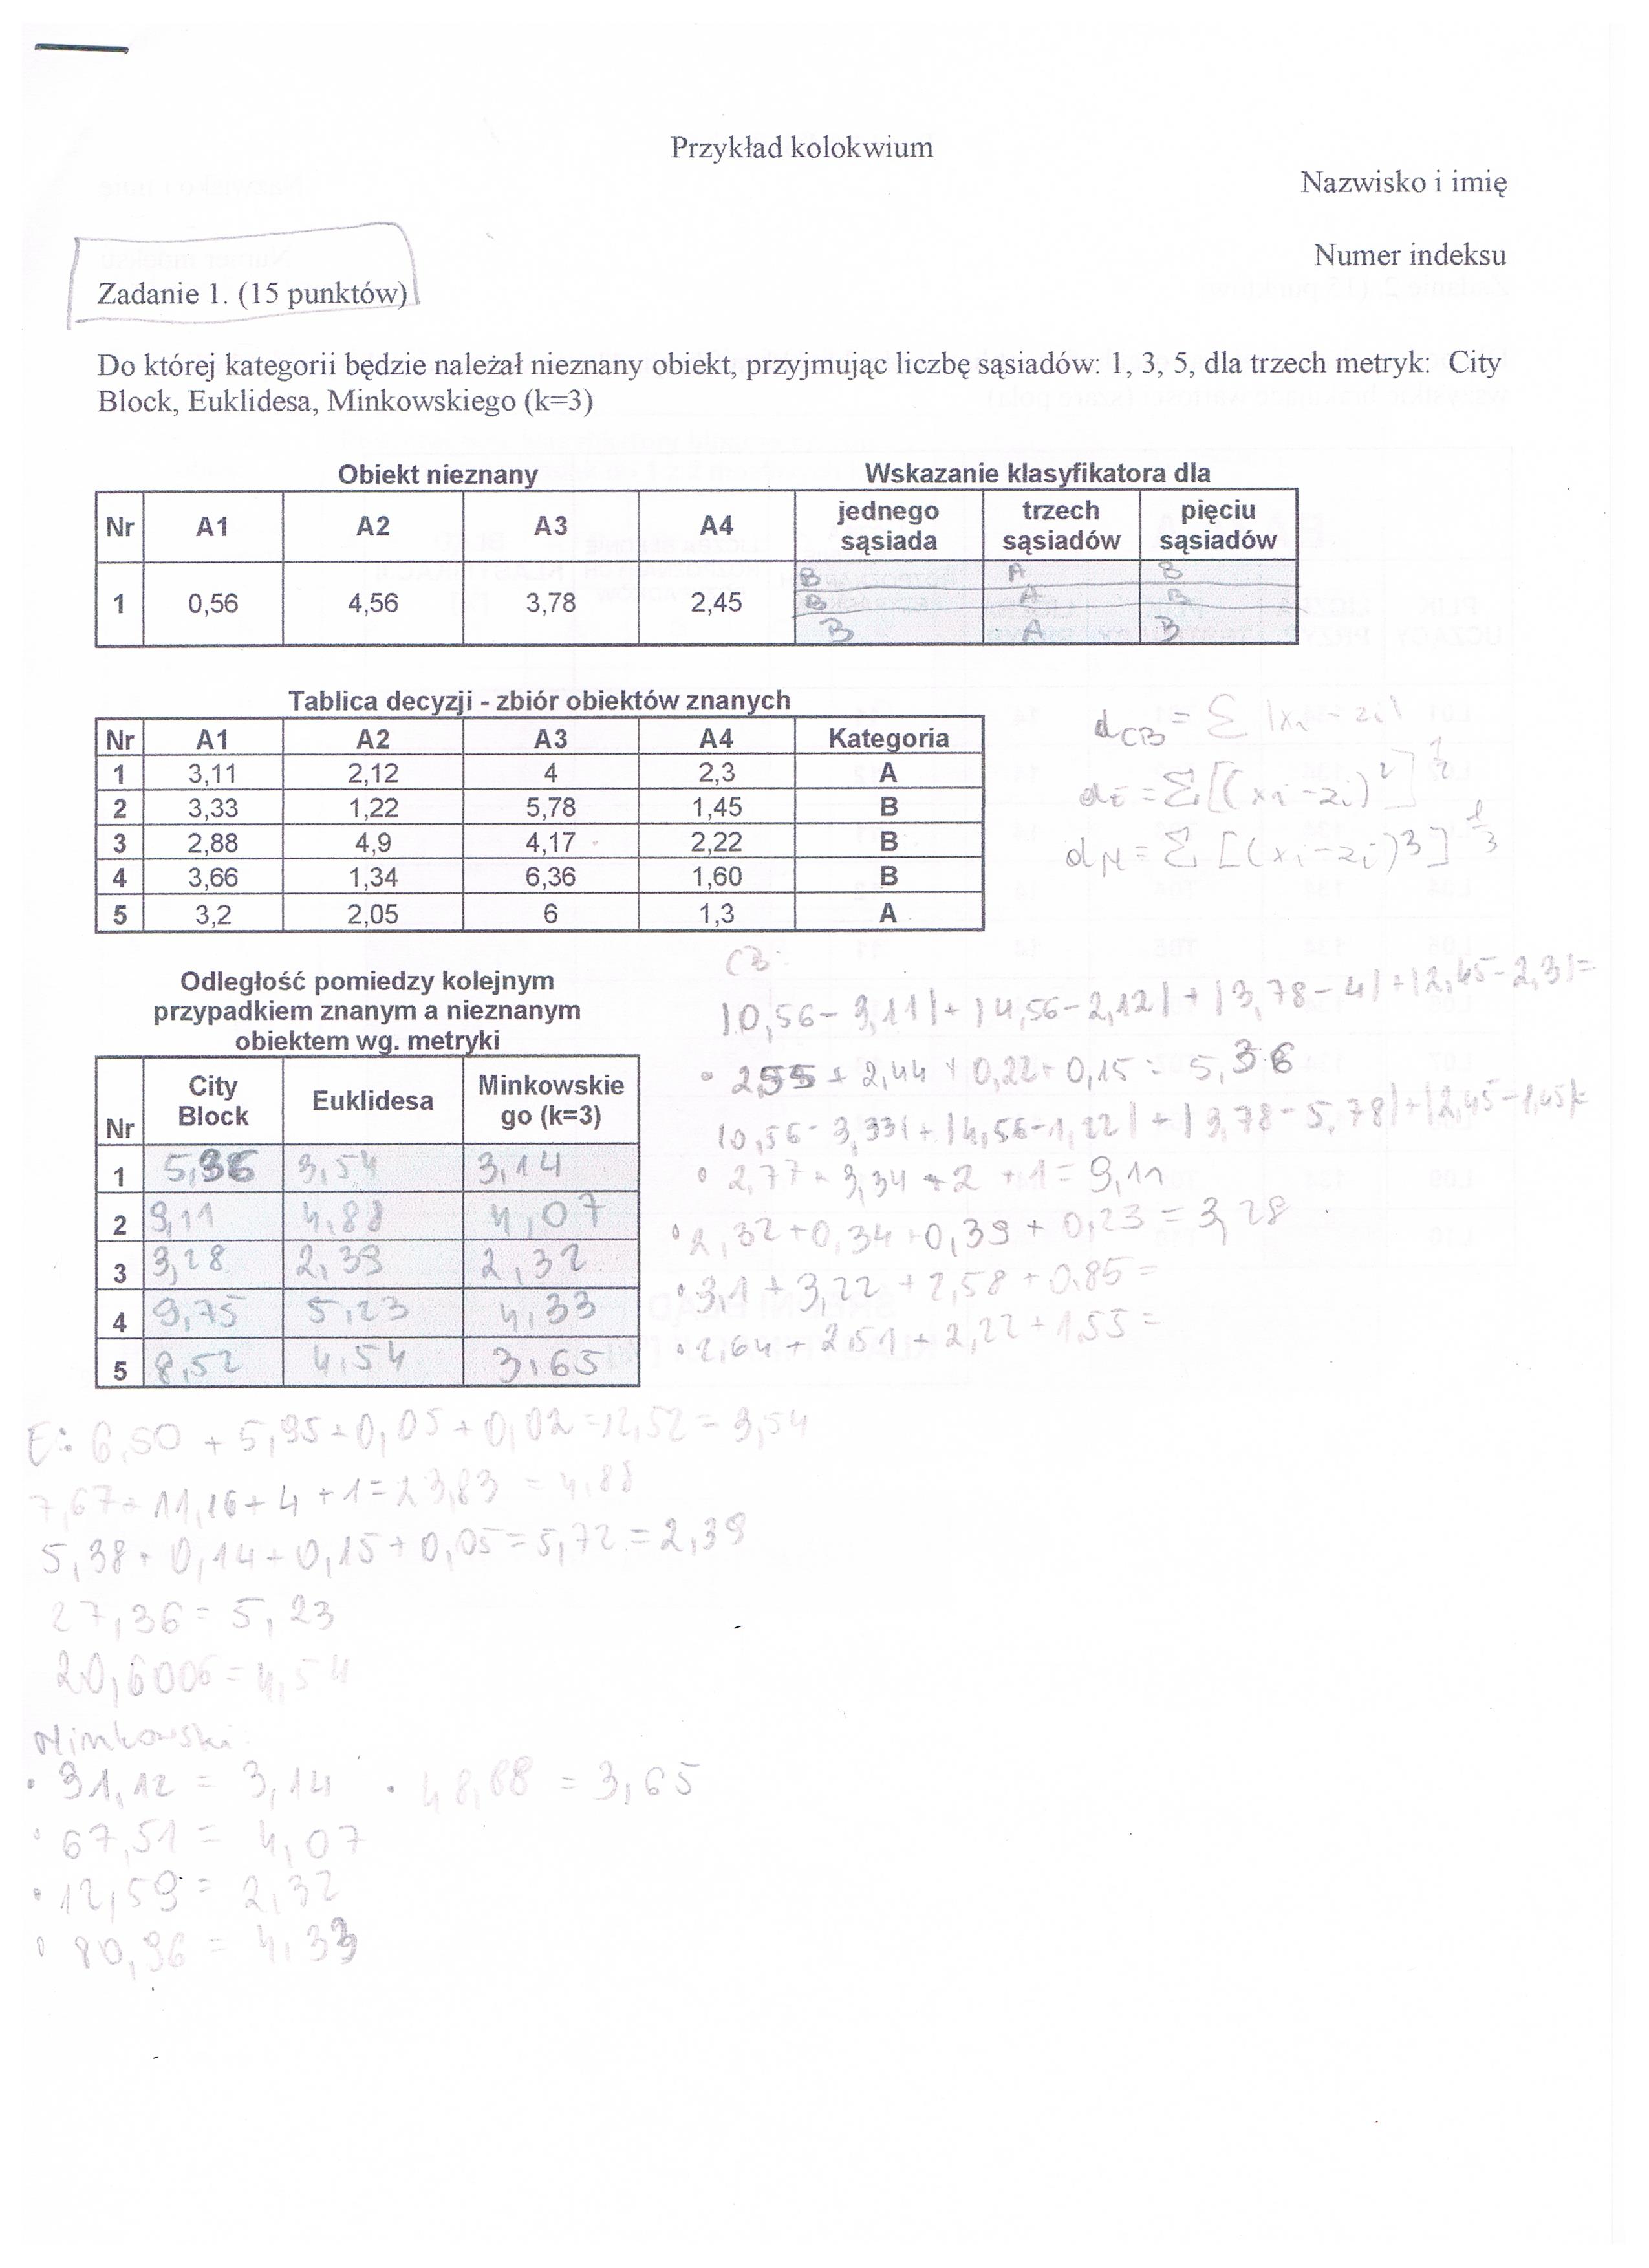 Przykład kolokwium
Nazwisko i imię
Numer indeksu
Zadanie 1. (15 punktów)
Do której kategorii będzie należał nieznany obiekt, przyjmując liczbę sąsiadów: 1, 3, 5, dla trzech metryk: City
Block, Euklidesa, Minkowskiego (k=3)
Obiekt nieznany Wskazanie klasyfikatora dla
Nr A1 A2 A3 A4 jednego sąsiada trzech sąsiadów pięciu sąsiadów
B A B
1 0,56 4,56 3,78 2,45 B A B
B A B
Tablica decyzji - zbiór obiektów znanych
Nr A1 A2 A3 A4 Kategoria
1 3,11 2,12 4 2,3 A
2 3,33 1,22 5,78 1,45 B
3 2,88 4,9 4,17 2,22 B
4 3,66 1,34 6,36 1,60 B
5 3,2 2,05 6 1,3 A
dCB = Σ |xi - zi|
dE = Σ[(xi - zi)²]^1/2
dM = Σ [(xi - zi)3]^1/3
Odległość pomiedzy kolejnym
przypadkiem znanym a nieznanym
obiektem wg. metryki
Nr City Block Euklidesa Minkowskie go (k=3)
1 5,36 3,54 3,14
2 9,11 4,88 4,07
3 3,28 2,39 2,32
4 9,75 5,23 4,33
5 8,52 4,54 3,65
CB:
|0,56-3,11|+|4,56-2,12|+|3,78-4|+|2,45-2,3|=
• 2,55+2,44+0,22+0,15=5,36
|0,56-3,33|+|4,56-1,22|+|3,78-5,78|+|2,45-1,45|=
• 2,77+3,34+2+1=9,11
• 2,32+0,34+0,39+0,23=3,28
• 3,1+3,22+2,58+0,85=
• 2,64+2,51+2,22+1,55=
E: 6,50+5,95+0,05+0,02=12,52=3,54
7,67+11,16+4+1=23,83=4,88
5,38+0,14+0,15+0,05=5,72=2,39
27,36=5,23
20,6006=4,54
Minkowski:
• 31,12=3,14 • 48,88=3,65
• 67,51=4,07
• 12,59=2,32
• 80,96=4,33